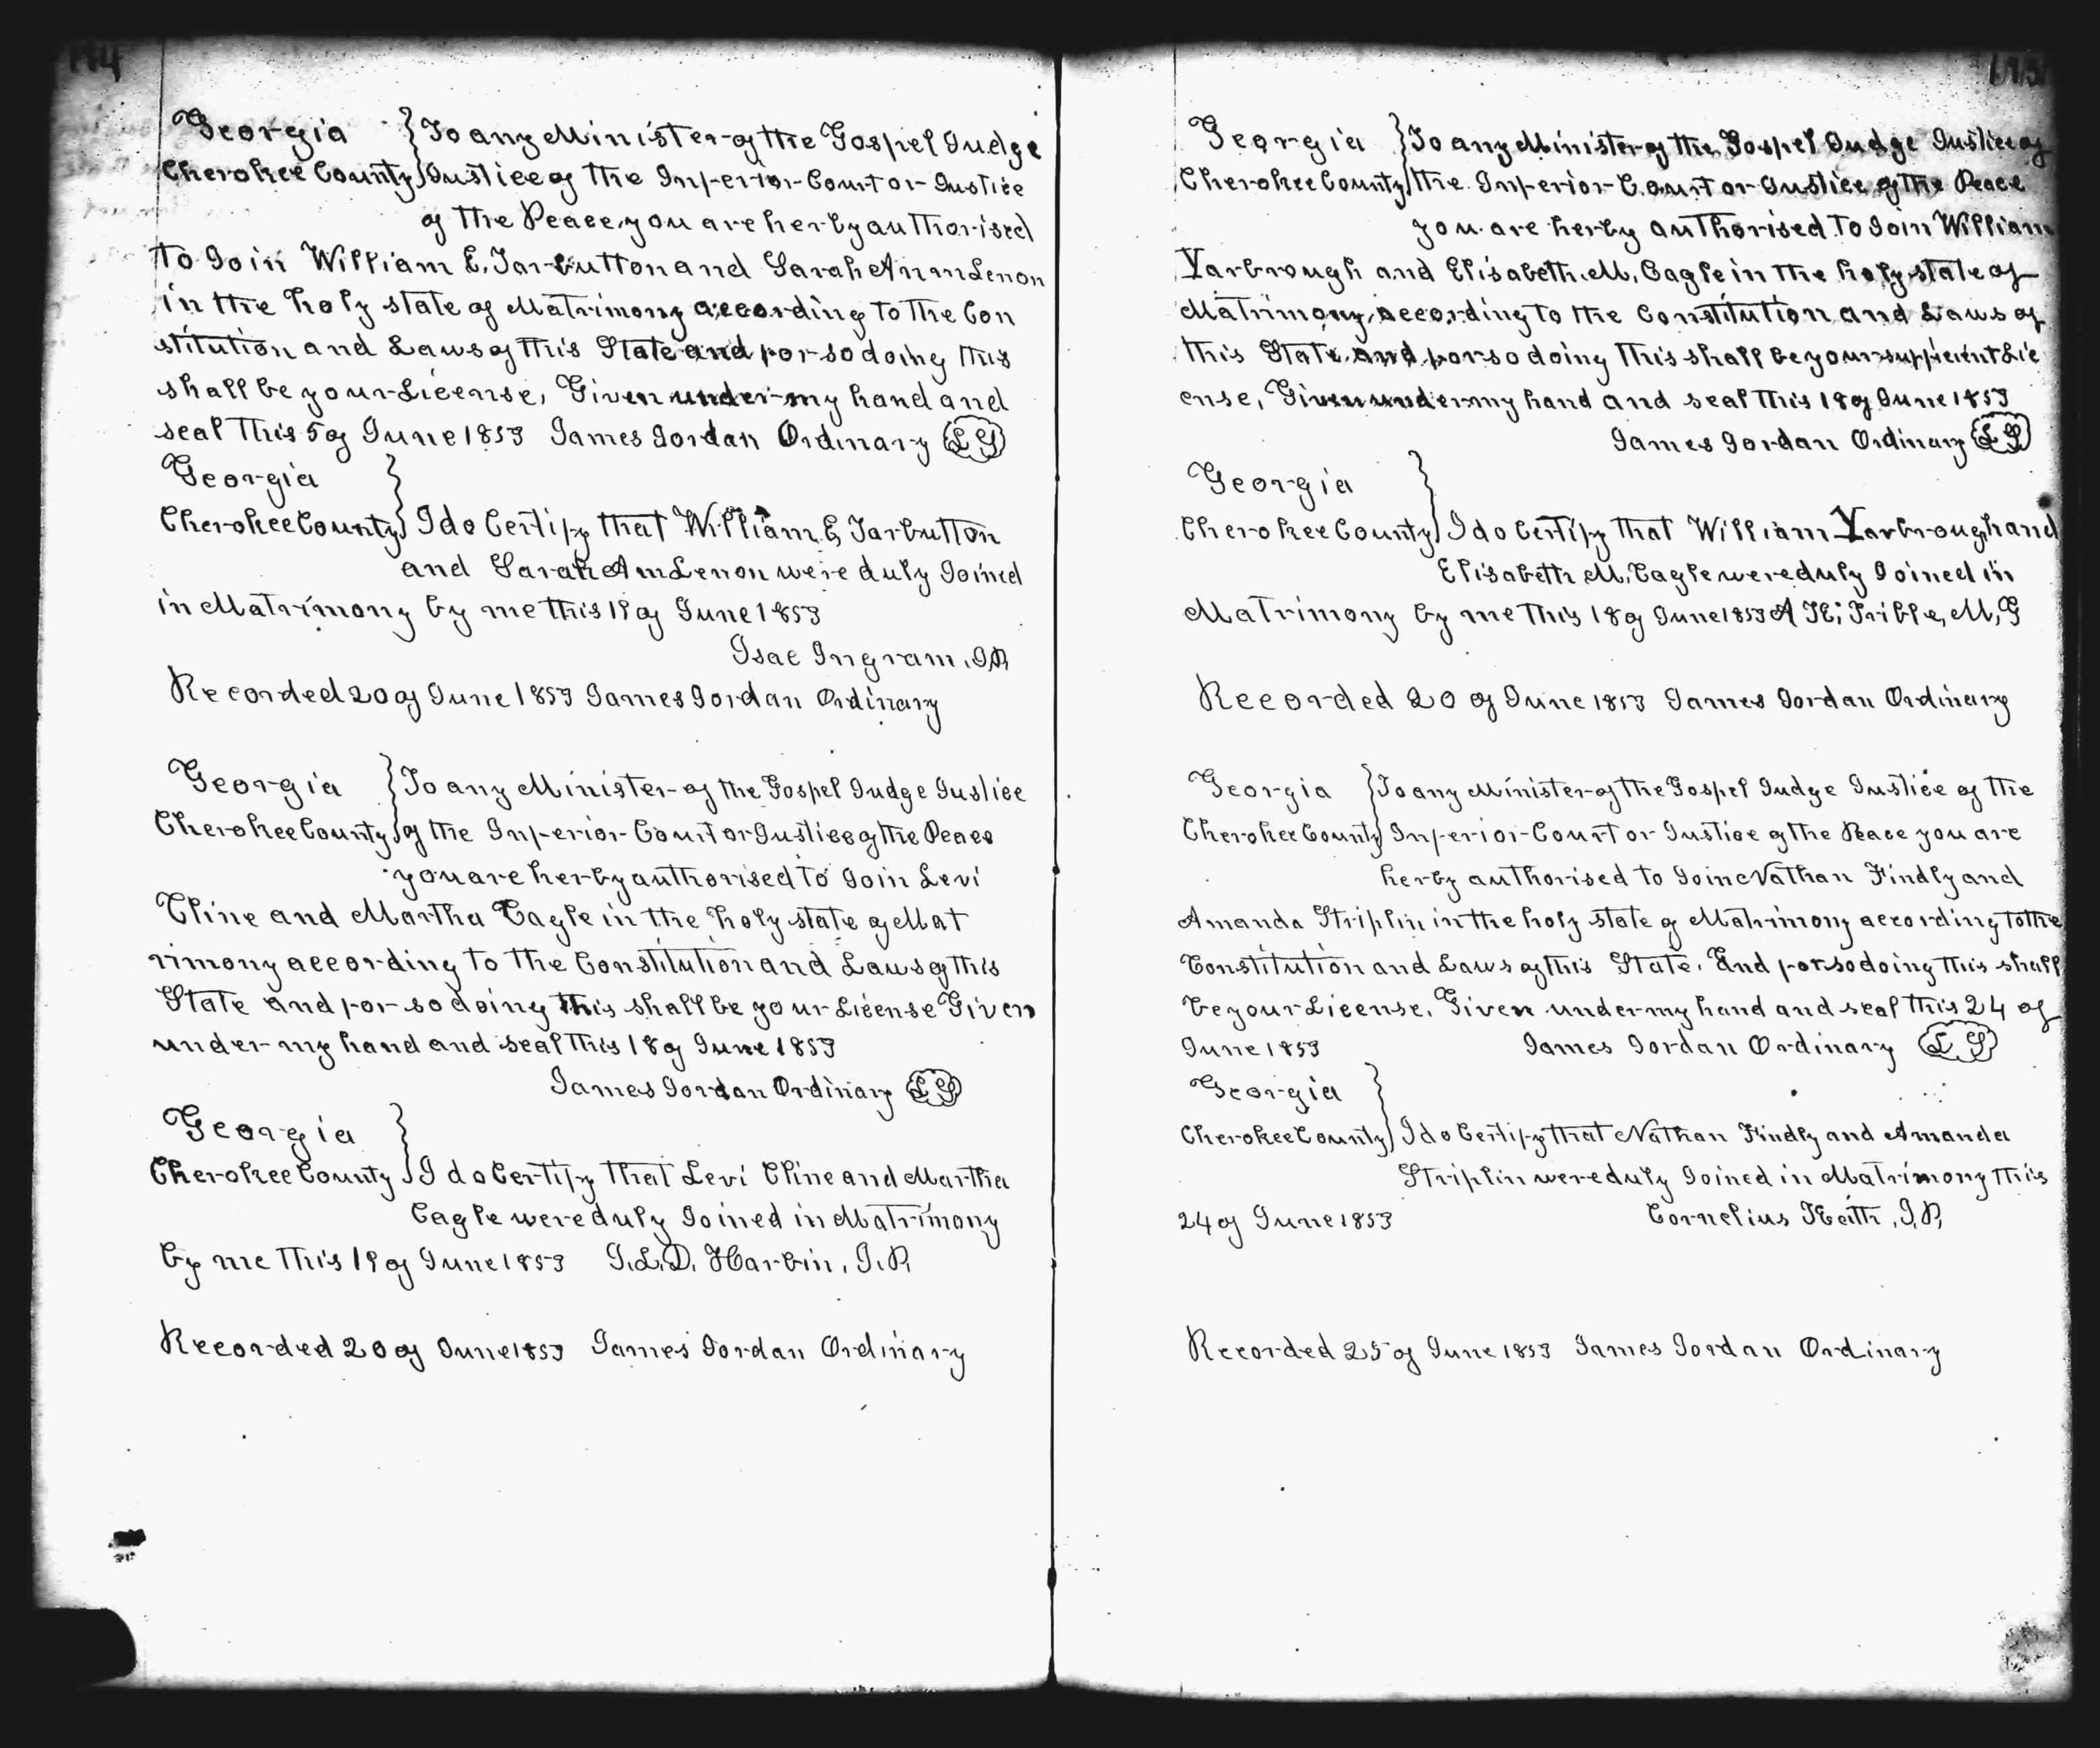 Georgia } To any Minister of the Gospel Judge
Cherokee County } Justice of the Inferior Court or Justice
of the Peace you are herby authorised
to Join William E. Tarbutton and Sarah Ann Lenon
in the holy state of Matrimony according to the Con
stitution and Laws of this State and for so doing this
shall be your License, Given under my hand and
seal this 5 of June 1853 James Jordan Ordinary LS
Georgia }
Cherokee County } I do Certify that William E Tarbutton
and Sarah Ann Lenon were duly Joined
in Matrimony by me this 19 of June 1853
Isac Ingram, J.P.
Recorded 20 of June 1853 James Jordan Ordinary
Georgia } To any Minister of the Gospel Judge Justice
Cherokee County } of the Inferior Court or Justice of the Peace
you are herby authorised to Join Levi
Cline and Martha Cagle in the holy state of Mat
rimony according to the Constitution and Laws of this
State and for so doing this shall be your License Given
under my hand and seal this 18 of June 1853
James Jordan Ordinary LS
Georgia }
Cherokee County } I do Certify that Levi Cline and Martha
Cagle were duly Joined in Matrimony
by me this 19 of June 1853 J.L.D. Harbin, J.P.
Recorded 20 of June 1853 James Jordan Ordinary
Georgia } To any Minister of the Gospel Judge Justice of
Cherokee County } the Inferior Court or Justice of the Peace
you are herby authorised to Join William
Yarbrough and Elisabeth M. Cagle in the holy state of
Matrimony, according to the Constitution and Laws of
this State and for so doing this shall be your sufficient Lic
ense, Given under my hand and seal this 18 of June 1853
James Jordan Ordinary LS
Georgia }
Cherokee County } I do Certify that William Yarbrough and
Elisabeth M. Cagle were duly Joined in
Matrimony by me this 18 of June 1853 A K. Tribble, M,G
Recorded 20 of June 1853 James Jordan Ordinary
Georgia } To any Minister of the Gospel Judge Justice of the
Cherokee County } Inferior Court or Justice of the Peace you are
herby authorised to Join Nathan Findly and
Amanda Striplin in the holy state of Matrimony according to the
Constitution and Laws of this State. and for so doing this shall
be your License. Given under my hand and seal this 24 of
June 1853 James Jordan Ordinary LS
Georgia }
Cherokee County } I do Certify that Nathan Findly and Amanda
Striplin were duly Joined in Matrimony this
24 of June 1853 Cornelius Keith, J.P.
Recorded 25 of June 1853 James Jordan Ordinary